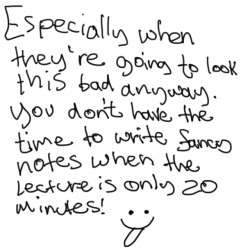 Especially when
they're going to look
this bad anyway.
You don't have the
time to write fancy
notes when the
lecture is only 20
minutes!